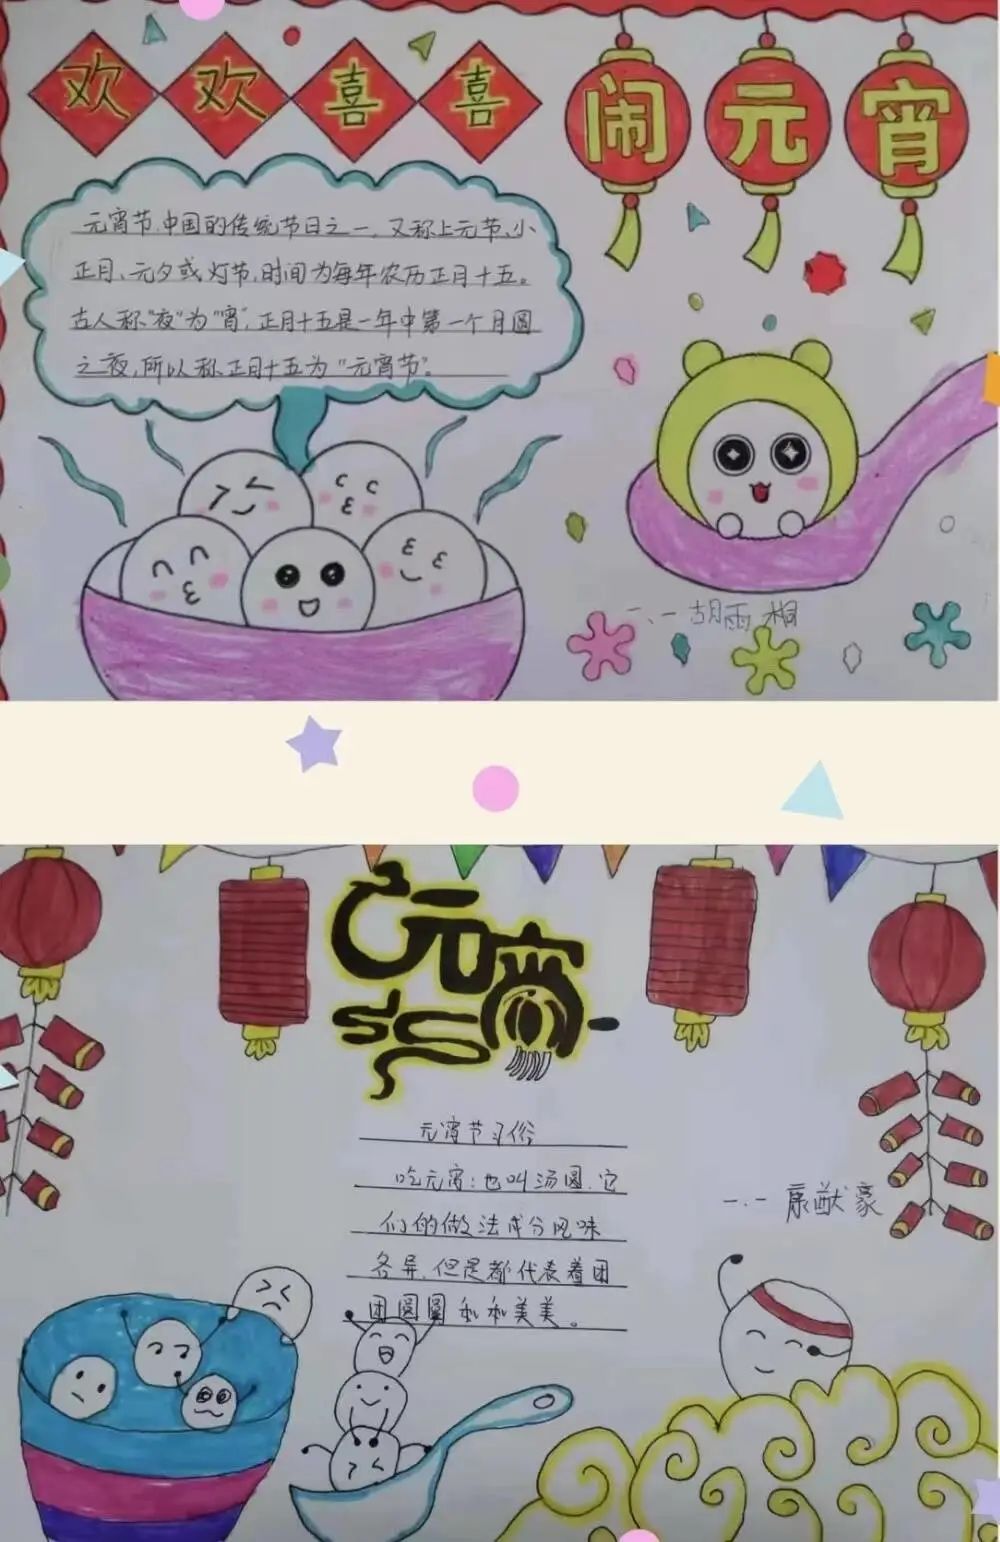 欢欢喜喜 闹元宵
元宵节,中国的传统节日之一,又称上元节、小
正月、元夕或灯节,时间为每年农历正月十五。
古人称“夜”为“宵”,正月十五是一年中第一个月圆
之夜,所以称正月十五为“元宵节”。
二、一胡雨桐
元宵
元宵节习俗
吃元宵:也叫汤圆.它
们的做法成分风味
各异,但是都代表着团
团圆圆和和美美。
一.一 康猷豪